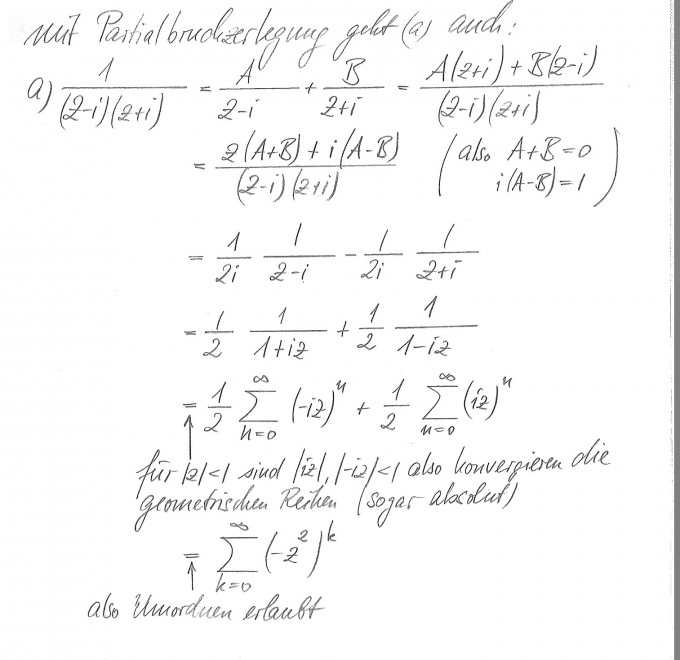 mit Partialbruchzerlegung geht (a) auch:
a) 1/((z-i)(z+i)) = A/(z-i) + B/(z+i) = (A(z+i) + B(z-i))/((z-i)(z+i))
= (z(A+B) + i(A-B))/((z-i)(z+i)) (also A+B=0
i(A-B)=1)
= 1/(2i) 1/(z-i) - 1/(2i) 1/(z+i)
= 1/2 1/(1+iz) + 1/2 1/(1-iz)
= 1/2 ∑_{n=0}^{∞} (-iz)^n + 1/2 ∑_{n=0}^{∞} (iz)^n
für |z|<1 sind |iz|, |-iz|<1 also konvergieren die
geometrischen Reihen (sogar absolut)
= ∑_{k=0}^{∞} (-z^2)^k
also Umordnen erlaubt